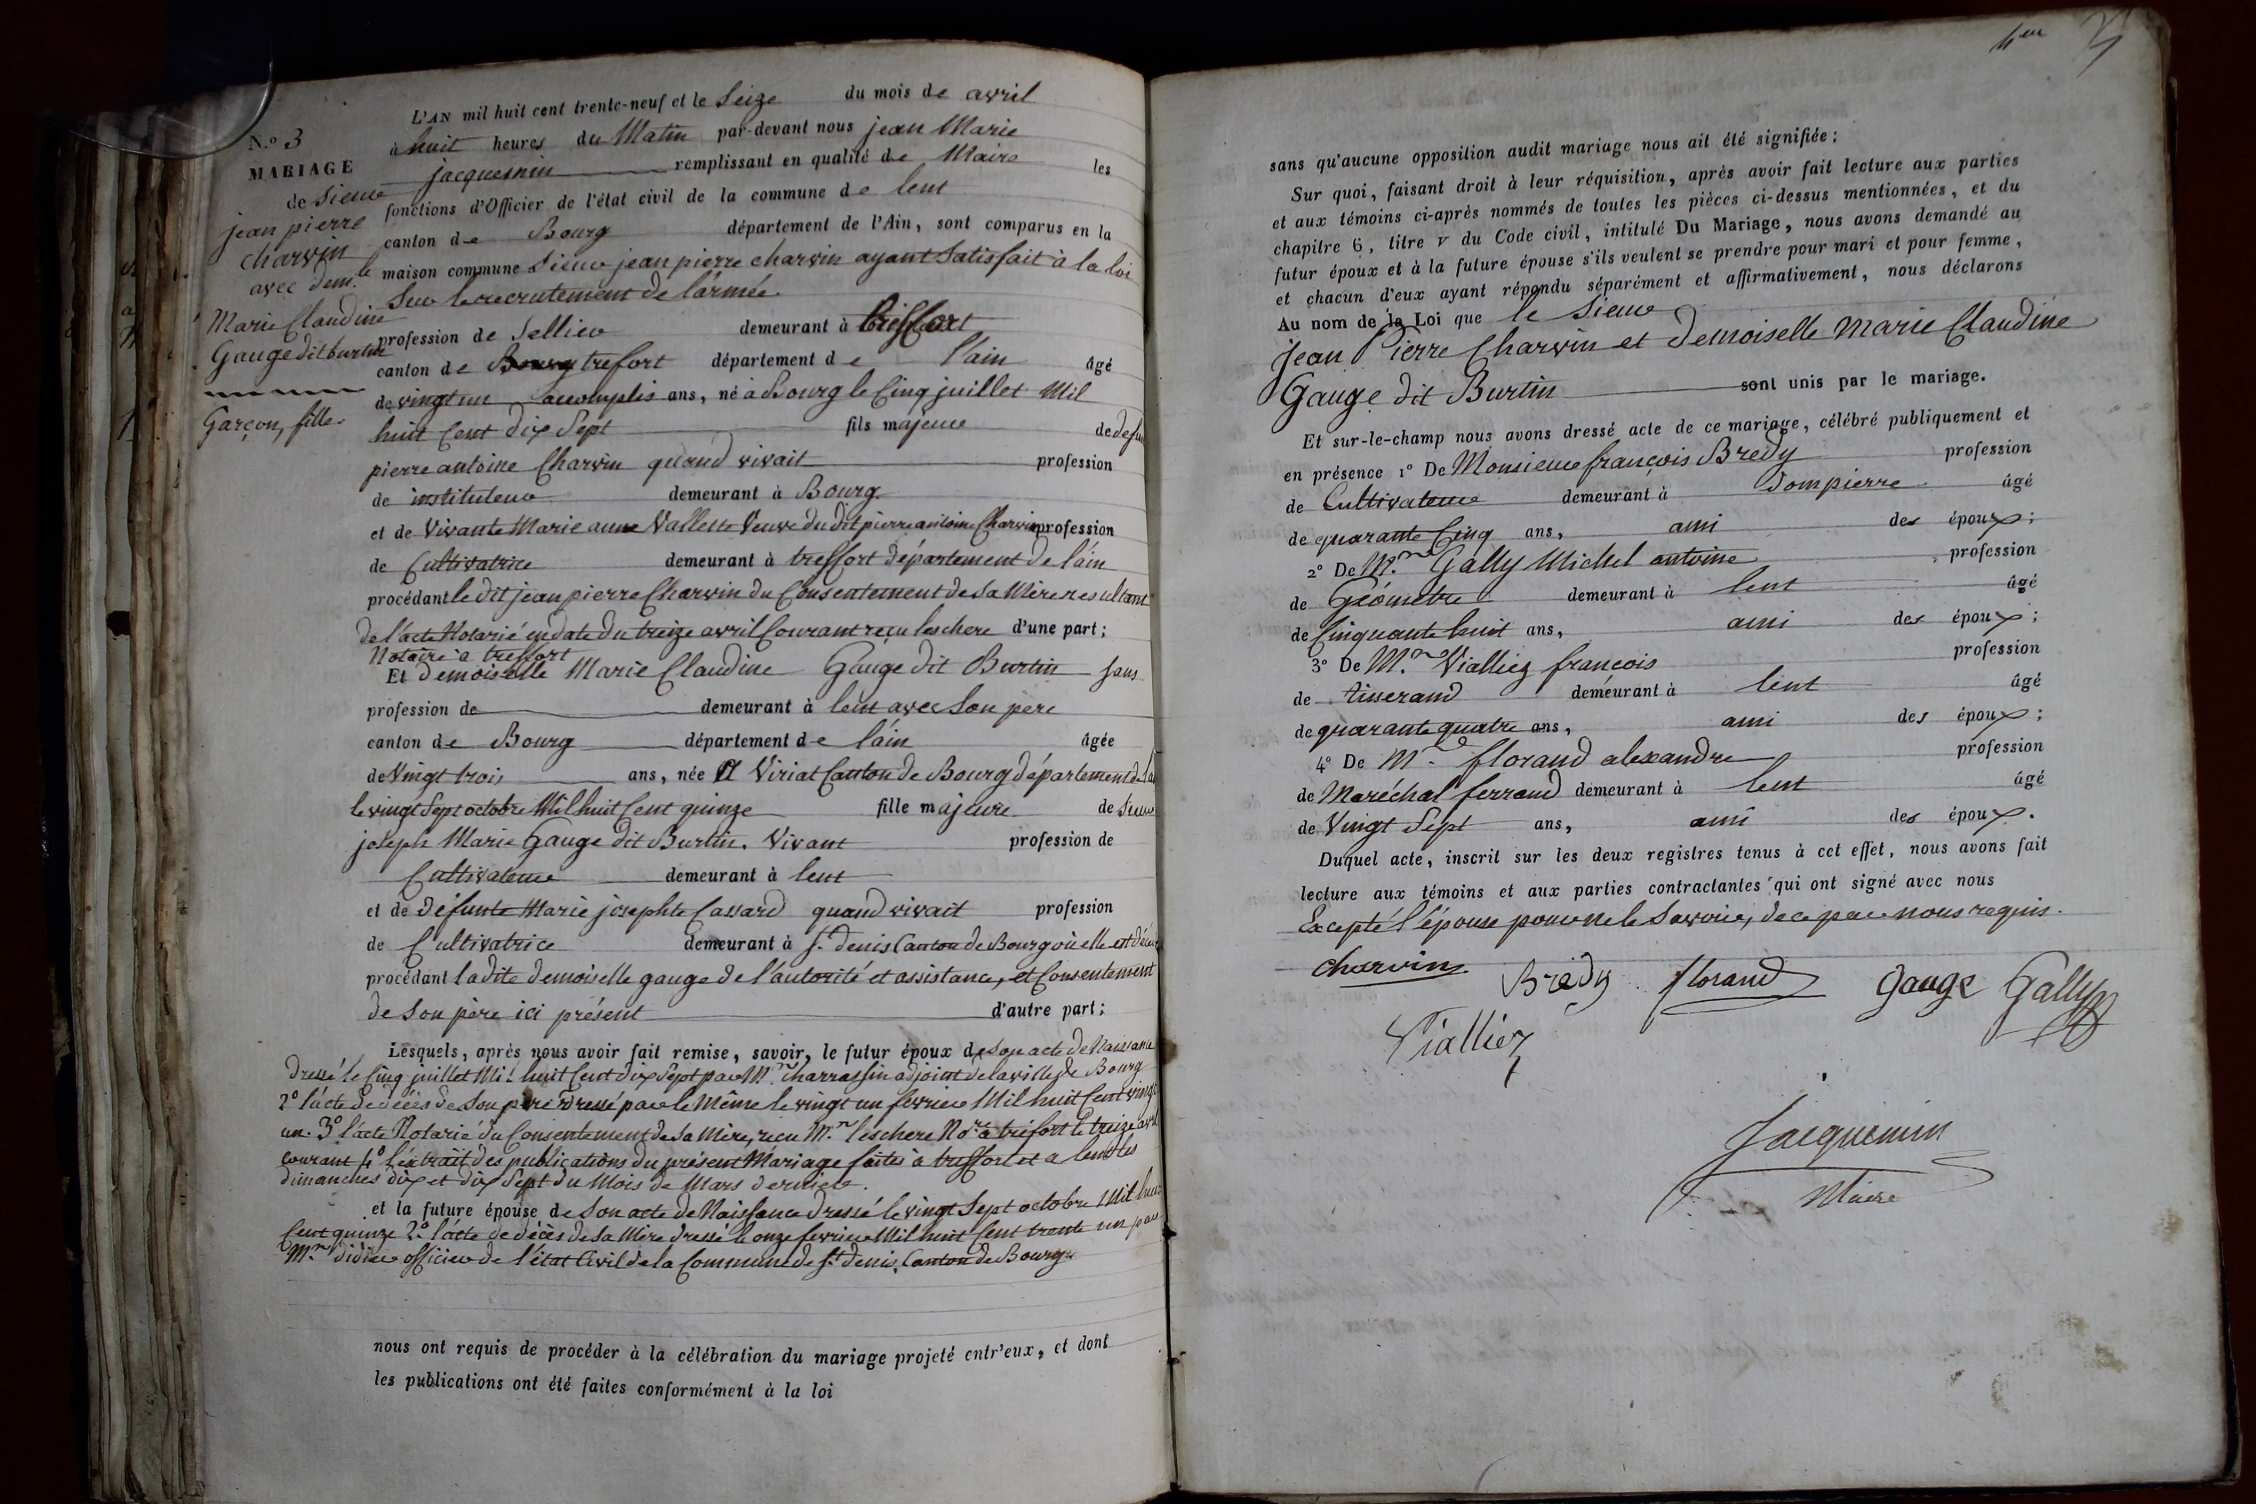 N.o 3
MARIAGE
de Sieur
jean pierre
charvin
avec dem.lle
Marie Claudine
Gauge dit burtin
Garçon, fille
L'AN mil huit cent trente-neuf et le Seize du mois de avril
à huit heures du Matin par-devant nous jean Marie
jacquemin remplissant en qualité de Maire les
fonctions d'Officier de l'état civil de la commune de lent
canton de Bourg département de l'Ain, sont comparus en la
maison commune Sieur jean pierre charvin ayant Satisfait à la loi
Sur le recrutement de l'armée
profession de Sellier demeurant à treffort
canton de trefort département de l'ain âgé
de vingt un accomplis ans, né à Bourg le Cinq juillet Mil
huit Cent dix Sept fils majeur de
pierre antoine Charvin quand vivait profession
de instituteur demeurant à Bourg
et de Vivante Marie anne Vallette Veuve du dit pierre antoine Charvin profession
de Cultivatrice demeurant à treffort département de l'ain
procédant le dit jean pierre Charvin du Consentement de Sa Mère resultant
de l'acte Notarié en date du treize avril Courant reçu leschere d'une part;
Notaire à treffort
Et demoiselle Marie Claudine Gauge dit Burtin Sans
profession de demeurant à lent avec Son père
canton de Bourg département de l'ain âgée
de Vingt trois ans, née à Viriat Canton de Bourg département de
le vingt Sept octobre Mil huit Cent quinze fille majeure de Sieur
joseph Marie Gauge dit Burtin. Vivant profession de
Cultivateur demeurant à lent
et de défunte Marie josephte Cassard quand vivait profession
de Cultivatrice demeurant à St. denis Canton de Bourg où elle est
procédant la dite demoiselle gauge de l'autorité et assistance, et Consentement
de Son père ici présent d'autre part;
Lesquels, après nous avoir fait remise, savoir, le futur époux de Son acte de Naissance
dressé le Cinq juillet Mil huit Cent dix Sept par Mr. Charrassin adjoint de la ville de Bourg
2o l'acte de décès de Son père dressé par le Même le vingt un fevrier Mil huit Cent vingt
un. 3o l'acte Notarié du Consentement de Sa Mère, reçu Mr. leschere Nore. à trefort le treize avril
courant 4o l'extrait des publications du présent Mariage faites à treffort et a lent les
dimanches dix et dix Sept du Mois de Mars dernier.
et la future épouse de Son acte de Naissance dressé le vingt Sept octobre Mil huit
Cent quinze 2o. l'acte de décès de Sa Mère dressé le onze fevrier Mil huit Cent trente un par
Mr. didier officier de l'état Civil de la Commune de St. denis, Canton de Bourg
nous ont requis de procéder à la célébration du mariage projeté entr'eux, et dont
les publications ont été faites conformément à la loi
sans qu'aucune opposition audit mariage nous ait été signifiée:
Sur quoi, faisant droit à leur réquisition, après avoir fait lecture aux parties
et aux témoins ci-après nommés de toutes les pièces ci-dessus mentionnées, et du
chapitre 6, titre v du Code civil, intitulé Du Mariage, nous avons demandé au
futur époux et à la future épouse s'ils veulent se prendre pour mari et pour femme,
et chacun d'eux ayant répondu séparément et affirmativement, nous déclarons
Au nom de la Loi que le Sieur
Jean Pierre Charvin et demoiselle Marie Claudine
Gauge dit Burtin sont unis par le mariage.
Et sur-le-champ nous avons dressé acte de ce mariage, célébré publiquement et
en présence 1o De Monsieur françois Bredy profession
de Cultivateur demeurant à dompierre âgé
de quarante Cinq ans, ami des époux;
2o De Mr. Gally Michel antoine profession
de Géomètre demeurant à lent âgé
de Cinquante huit ans, ami des époux;
3o De Mr. Viallier françois profession
de tisserand demeurant à lent âgé
de quarante quatre ans, ami des époux;
4o De Mr. florand alexandre profession
de Maréchal ferrand demeurant à lent âgé
de Vingt Sept ans, ami des époux.
Duquel acte, inscrit sur les deux registres tenus à cet effet, nous avons fait
lecture aux témoins et aux parties contractantes qui ont signé avec nous
Excepté l'épouse pour ne le Savoir, de ce par nous requis.
charvin Brédy florand gauge Gally
Viallier
Jacquemin
Maire